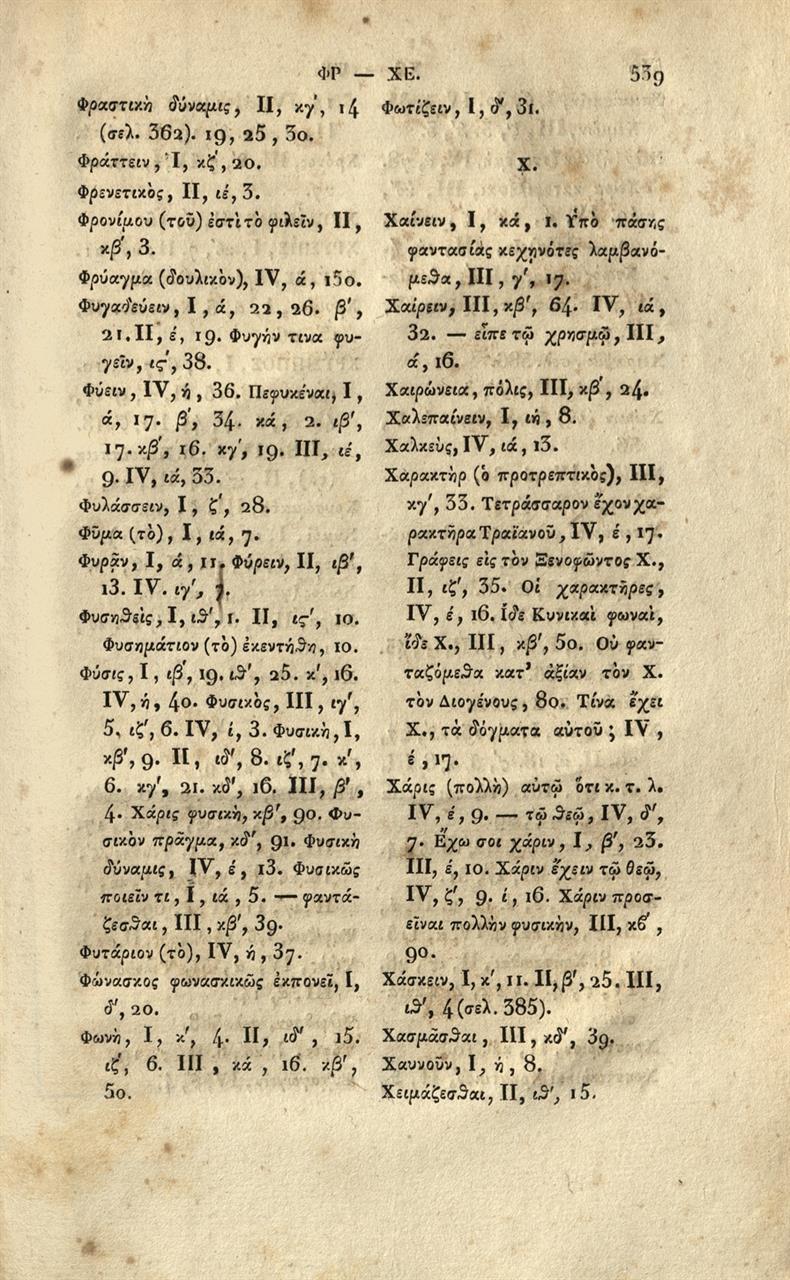 ΦΡ — ΧΕ. 539
Φραστικὴ δύναμις, II, κγ', 14
(σελ. 362). 19, 25, 30.
Φράττειν, I, κζ', 20.
Φρενετικὸς, II, ιέ, 3.
Φρονίμου (τοῦ) ἐστὶ τὸ φιλεῖν, II,
κβ', 3.
Φρύαγμα (δουλικὸν), IV, ά, 150.
Φυγαδεύειν, I, ά, 22, 26. β',
21. II, έ, 19. Φυγήν τινα φυ-
γεῖν, ις', 38.
Φύειν, IV, ή, 36. Πεφυκέναι, I,
ά, 17. β', 34. κά, 2. ιβ',
17. κβ', 16. κγ', 19. III, ιέ,
9. IV, ιά, 33.
Φυλάσσειν, I, ζ', 28.
Φῦμα (τὸ), I, ιά, 7.
Φυρᾷν, I, ά, 11. Φύρειν, II, ιβ',
13. IV. ιγ', 7.
Φυσηθεὶς, I, ιθ', 1. II, ις', 10.
Φυσημάτιον (τὸ) ἐκεντήθη, 10.
Φύσις, I, ιβ', 19. ιθ', 25. κ', 16.
IV, ή, 40. Φυσικὸς, III, ιγ',
5. ιζ', 6. IV, ί, 3. Φυσικὴ, I,
κβ', 9. II, ιδ', 8. ιζ', 7. κ',
6. κγ', 21. κδ', 16. III, β',
4. Χάρις φυσικὴ, κβ', 90. Φυ-
σικὸν πρᾶγμα, κδ', 91. Φυσικὴ
δύναμις, IV, έ, 13. Φυσικῶς
ποιεῖν τι, I, ιά, 5. — φαντά-
ζεσθαι, III, κβ', 39.
Φυτάριον (τὸ), IV, ή, 37.
Φώνασκος φωνασκικῶς ἐκπονεῖ, I,
δ', 20.
Φωνὴ, I, κ', 4. II, ιδ', 15.
ιζ', 6. III, κά, 16. κβ',
50.
Φωτίζειν, I, δ', 31.
Χ.
Χαίνειν, I, κά, 1. Ὑπὸ πάσης
φαντασίας κεχηνότες λαμβανό-
μεθα, III, γ', 17.
Χαίρειν, III, κβ', 64. IV, ιά,
32. — εἶπε τῷ χρησμῷ, III,
ά, 16.
Χαιρώνεια, πόλις, III, κβ', 24.
Χαλεπαίνειν, I, ιή, 8.
Χαλκεὺς, IV, ιά, 13.
Χαρακτὴρ (ὁ προτρεπτικὸς), III,
κγ', 33. Τετράσσαρον ἔχον χα-
ρακτῆρα Τραϊανοῦ, IV, έ, 17.
Γράφεις εἰς τὸν Ξενοφῶντος Χ.,
II, ιζ', 35. Οἱ χαρακτῆρες,
IV, έ, 16. ἴδε Κυνικαὶ φωναὶ,
ἴδε Χ., III, κβ', 50. Οὐ φαν-
ταζόμεθα κατ' ἀξίαν τὸν Χ.
τὸν Διογένους, 80. Τίνα ἔχει
Χ., τὰ δόγματα αὐτοῦ; IV,
έ, 17.
Χάρις (πολλὴ) αὐτῷ ὅτι κ. τ. λ.
IV, έ, 9. — τῷ θεῷ, IV, δ',
7. Ἔχω σοι χάριν, I, β', 23.
III, έ, 10. Χάριν ἔχειν τῷ θεῷ,
IV, ζ', 9. ί, 16. Χάριν προσ-
εῖναι πολλὴν φυσικὴν, III, κβ',
90.
Χάσκειν, I, κ', 11. II, β', 25. III,
ιθ', 4 (σελ. 385).
Χασμᾶσθαι, III, κδ', 39.
Χαυνοῦν, I, ή, 8.
Χειμάζεσθαι, II, ιθ', 15.